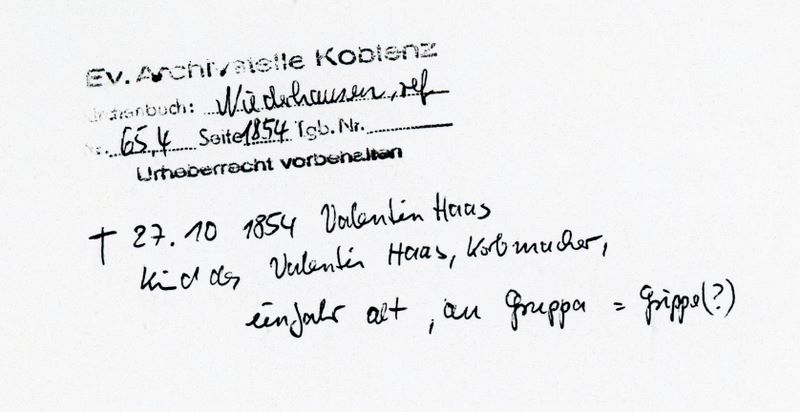 Ev. Archivstelle Koblenz
Kirchenbuch: Niederhausen, ref
Nr. 65,4 Seite 1854 Tgb. Nr.
Urheberrecht vorbehalten
† 27.10 1854 Valentin Haas
Kind des Valentin Haas, Korbmacher,
ein Jahr alt, an Gruppa = Grippe(?)